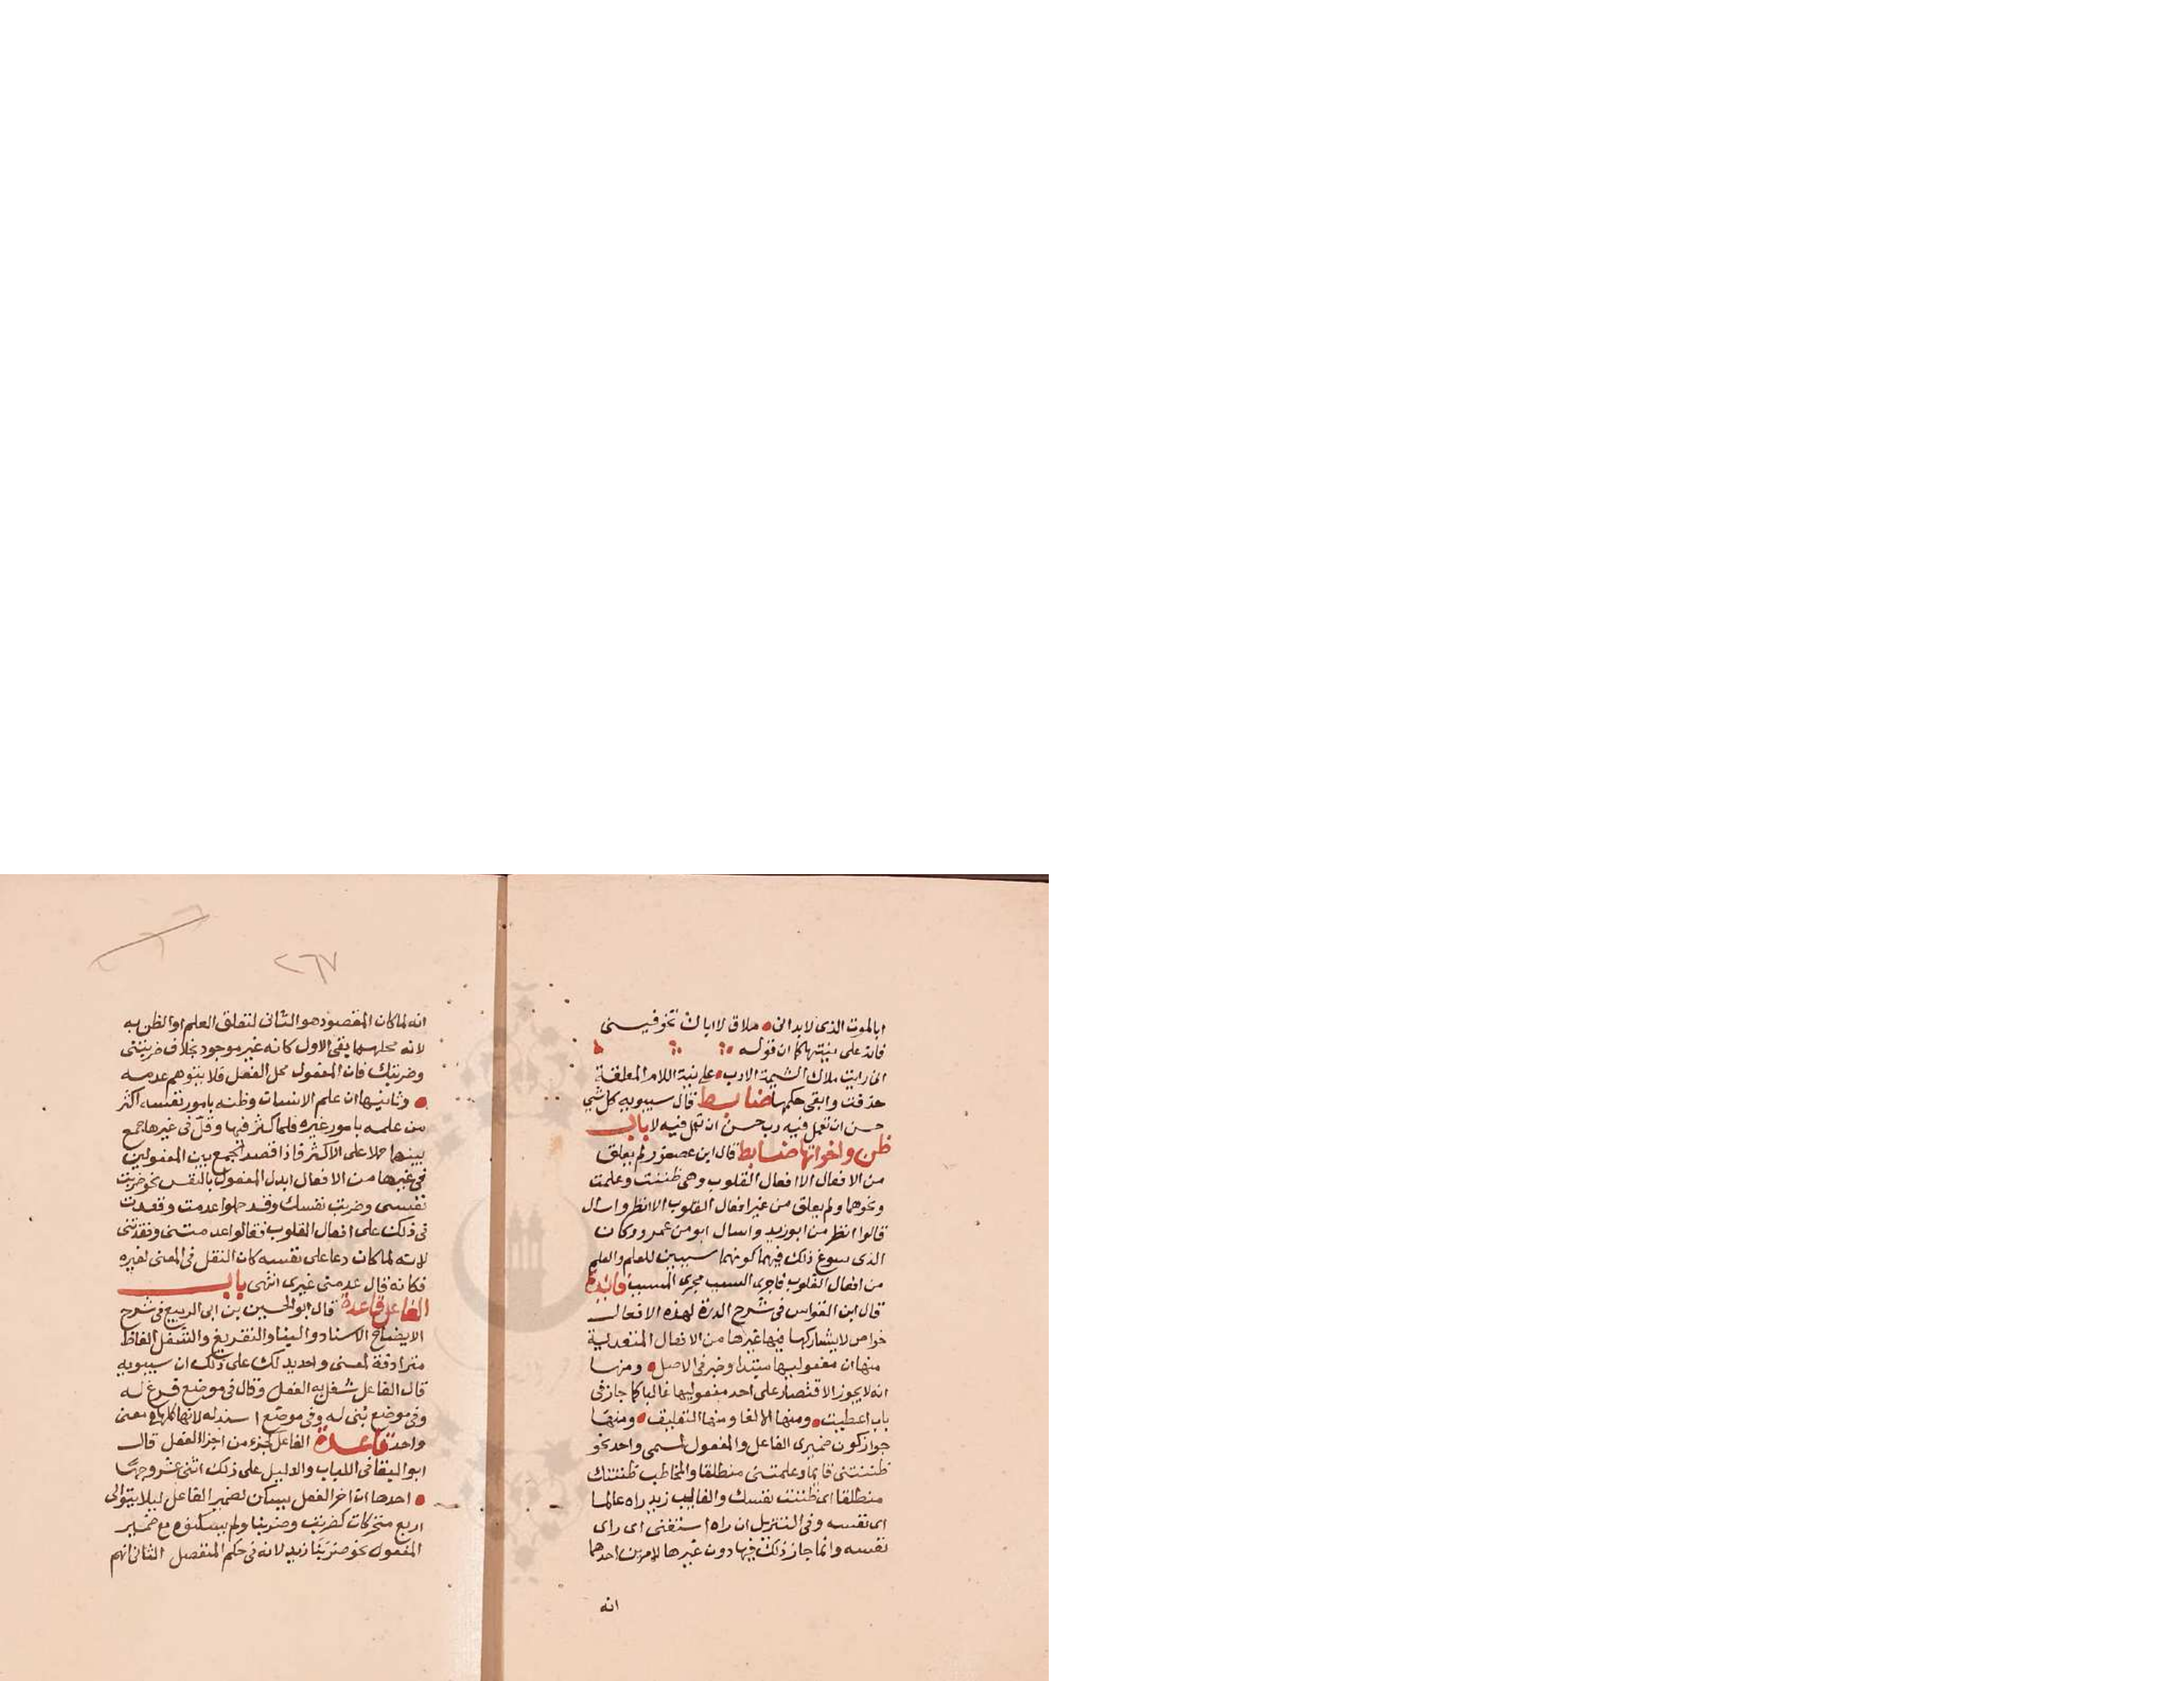 ابالموت الذى لابد انى ملاق لا اباك تخوفينى
فانه على نيتها كما ان قوله
انى رايت ملاك الشيمة الادب على نية اللام المعلقة
حذفت وابقى حكمها ضابط قال سيبويه كل شى
حسن ان تعمل فيه رب حسن ان تعمل فيه لا باب
ظن واخواتها ضابط قال ابن عصفور لم يعلق
من الافعال الا افعال القلوب وهى ظننت وعلمت
ونحوهما ولم يعلق من غير افعال القلوب الا انظر واسال
قالوا انظر من ابوزيد واسال ابو من عمرو وكان
الذى سوغ ذلك فيهما كونهما سببين للعلم والعلم
من افعال القلوب فاجرى السبب مجرى المسبب فائدة
قال ابن القواس فى شرح الدرة لهذه الافعال
خواص لا يشاركها فيها غيرها من الافعال المتعدية
منها ان مفعوليها مبتدا وخبر فى الاصل ومنها
انه لا يجوز الاقتصار على احد مفعوليها غالبا كما جاز فى
باب اعطيت ومنها الالغا ومنها التعليق ومنها
جواز كون ضميرى الفاعل والمفعول لمسمى واحد نحو
ظننتنى قايما وعلمتنى منطلقا والمخاطب ظننتك
منطلقا اى ظننت نفسك والغايب زيد راه عالما
اى نفسه وفى التنزيل ان راه استغنى اى راى
نفسه وانما جاز ذلك فيها دون غيرها لامرين احدهما
انه
٢٦٧
انه لما كان المقصود هو الثانى لتعلق العلم او الظن به
لانه محلهما بقى الاول كانه غير موجود بخلاف ضربتنى
وضربتك فان المفعول محل الفعل فلا يتوهم عدمه
وثانيها ان علم الانسان وظنه بامور نفسه اكثر
من علمه بامور غيره فلما كثر فيها وقل فى غيرها جمع
بينهما حملا على الاكثر فاذا قصد الجمع بين المفعولين
فى غيرها من الافعال ابدل المفعول بالنفس نحو ضربت
نفسى وضربت نفسك وقد حملوا عدمت وفقدت
فى ذلك على افعال القلوب فقالوا عدمتنى وفقدتنى
لانه لما كان دعا على نفسه كان النقل فى المعنى لغيره
فكانه قال عدمنى غيرى انتهى باب
الفاعل قاعدة قال ابو الحسين بن ابى الربيع فى شرح
الايضاح الاسناد والبنا والتفريغ والشغل الفاظ
مترادفة لمعنى واحد يدلك على ذلك ان سيبويه
قال الفاعل شغل به الفعل وقال فى موضع فرغ له
وفى موضع بنى له وفى موضع اسند له لانها كلها فى معنى
واحد قاعدة الفاعل كجزء من اجزا الفعل قال
ابو البقا فى اللباب والدليل على ذلك اثنى عشر وجها
احدها ان اخر الفعل يسكن لضمير الفاعل ليلا يتوالى
اربع متحركات كضربت وضربنا ولم يسكنوه مع ضمير
المفعول نحو ضربنا زيد لانه فى حكم المنفصل الثانى انهم